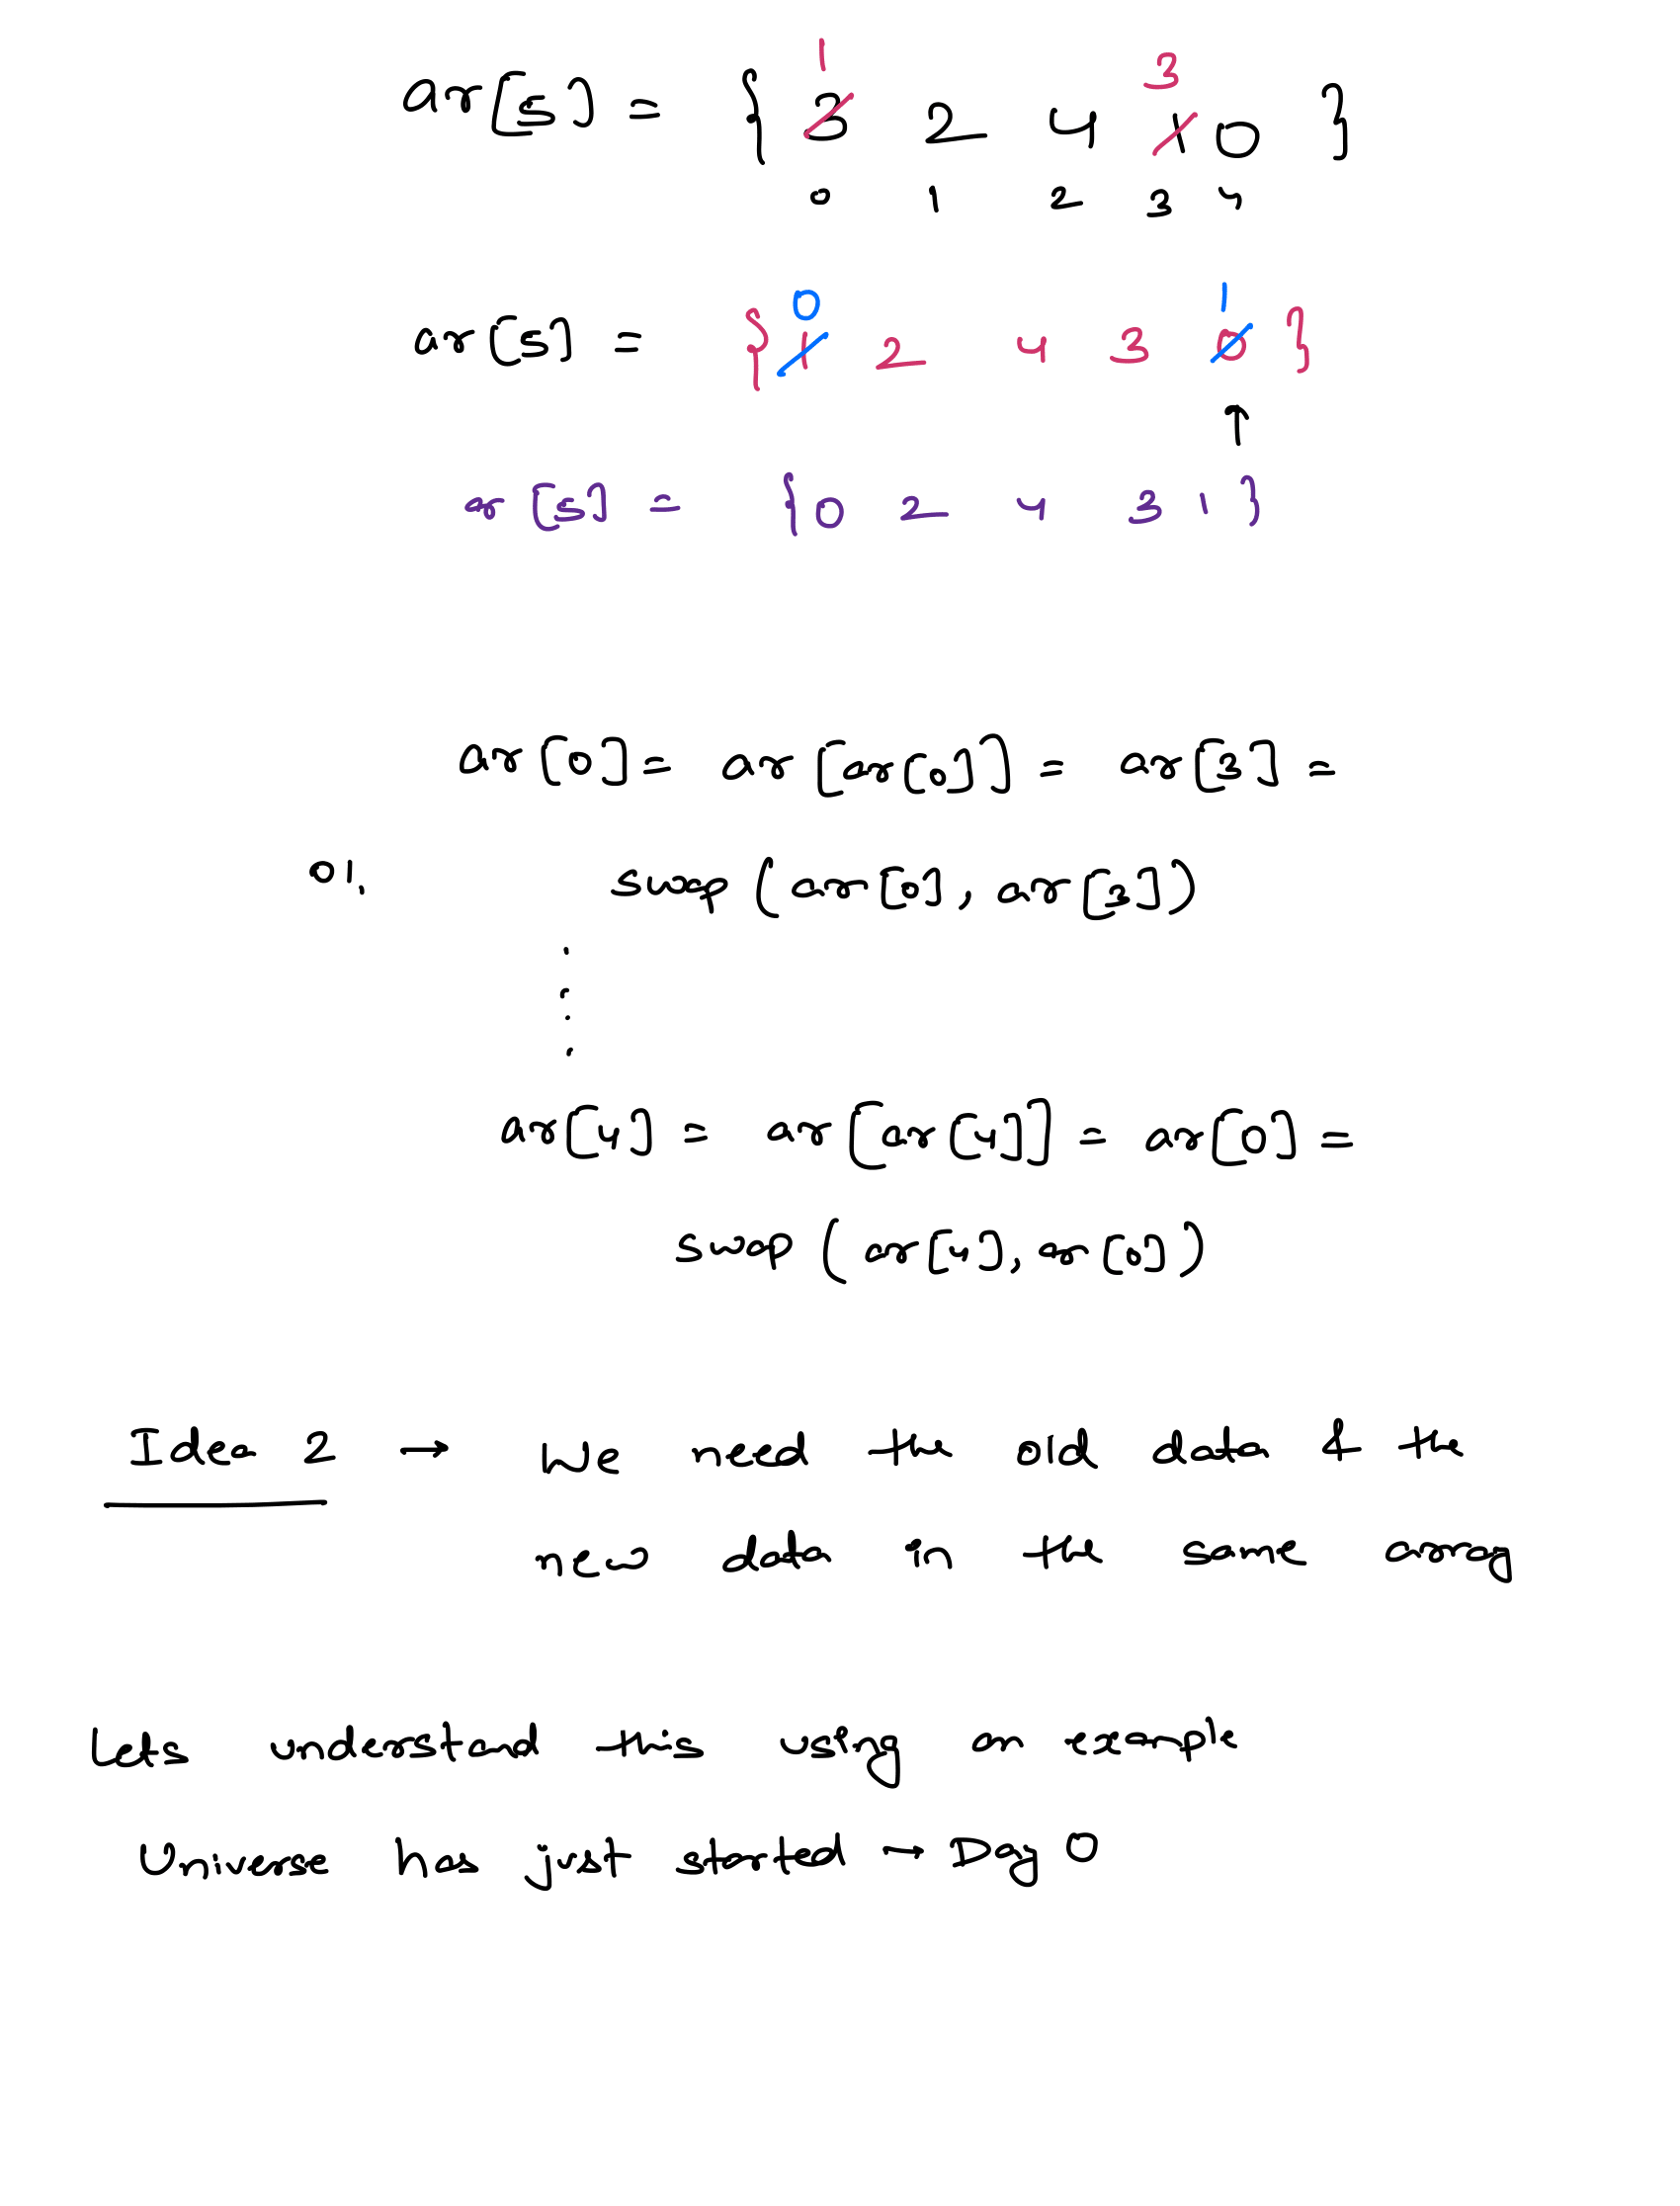 1 3
ar[5] = { 3 2 4 1 0 }
0 1 2 3 4
0 1
ar[5] = { 1 2 4 3 0 }
↑
ar[5] = { 0 2 4 3 1 }
ar[0] = ar[ar[0]] = ar[3] =
01. swap (ar[0], ar[3])
ar[4] = ar[ar[4]] = ar[0] =
swap (ar[4], ar[0])
Idea 2 → We need the old data & the
new data in the same array
Lets understand this using an example
Universe has just started → Day 0